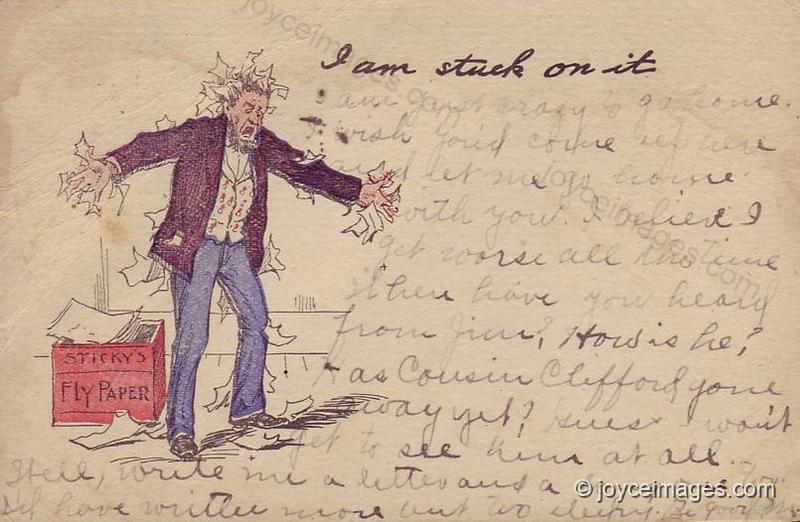 I am stuck on it
I am just crazy to go home.
I wish you'd come up here
and let me go home
with you. I believe I
get worse all the time
When have you heard
from Jim? How is he?
Has Cousin Clifford gone
away yet? Guess I won't
get to see him at all.
STICKY'S
FLY PAPER
Well, write me a letter and a
I'd have written more but too sleepy. Be good
joyceimages.com
joyceimages.com
© joyceimages.com